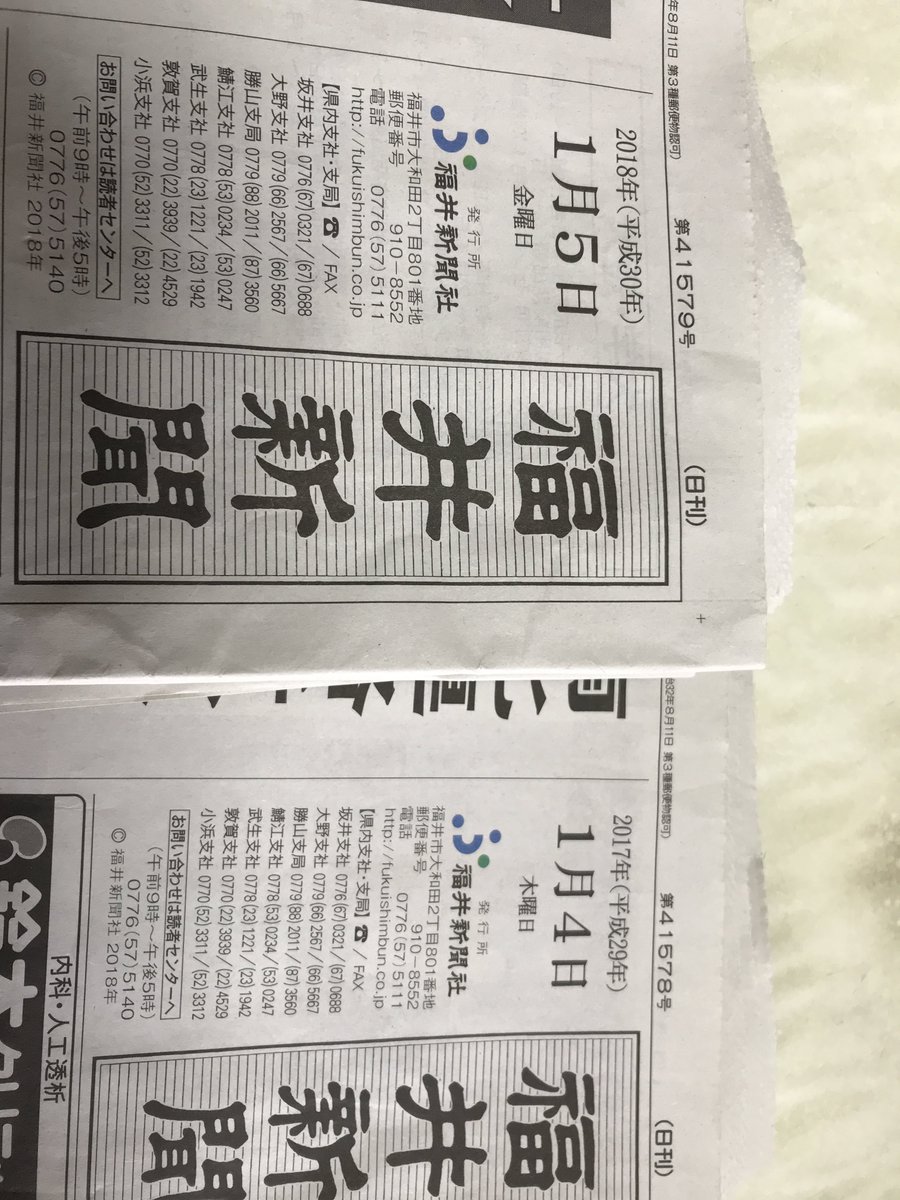 年8月11日 第3種郵便物認可)
第41579号
(日刊)
2018年(平成30年)
1月5日
金曜日
発行所
福井新聞社
福井市大和田2丁目801番地
郵便番号 910-8552
電話 0776(57)5111
http://fukuishimbun.co.jp
【県内支社・支局】☎/FAX
坂井支社 0776(67)0321/(67)0688
大野支社 0779(66)2567/(66)5667
勝山支局 0779(88)2011/(87)3560
鯖江支社 0778(53)0234/(53)0247
武生支社 0778(23)1221/(23)1942
敦賀支社 0770(22)3939/(22)4529
小浜支社 0770(52)3311/(52)3312
お問い合わせは読者センターへ
(午前9時〜午後5時)
0776(57)5140
©福井新聞社 2018年
福井新聞
32年8月11日 第3種郵便物認可)
第41578号
(日刊)
2017年(平成29年)
1月4日
木曜日
発行所
福井新聞社
福井市大和田2丁目801番地
郵便番号 910-8552
電話 0776(57)5111
http://fukuishimbun.co.jp
【県内支社・支局】☎/FAX
坂井支社 0776(67)0321/(67)0688
大野支社 0779(66)2567/(66)5667
勝山支局 0779(88)2011/(87)3560
鯖江支社 0778(53)0234/(53)0247
武生支社 0778(23)1221/(23)1942
敦賀支社 0770(22)3939/(22)4529
小浜支社 0770(52)3311/(52)3312
お問い合わせは読者センターへ
(午前9時〜午後5時)
0776(57)5140
©福井新聞社 2018年
福井新聞
内科・人工透析
鈴木クリニ